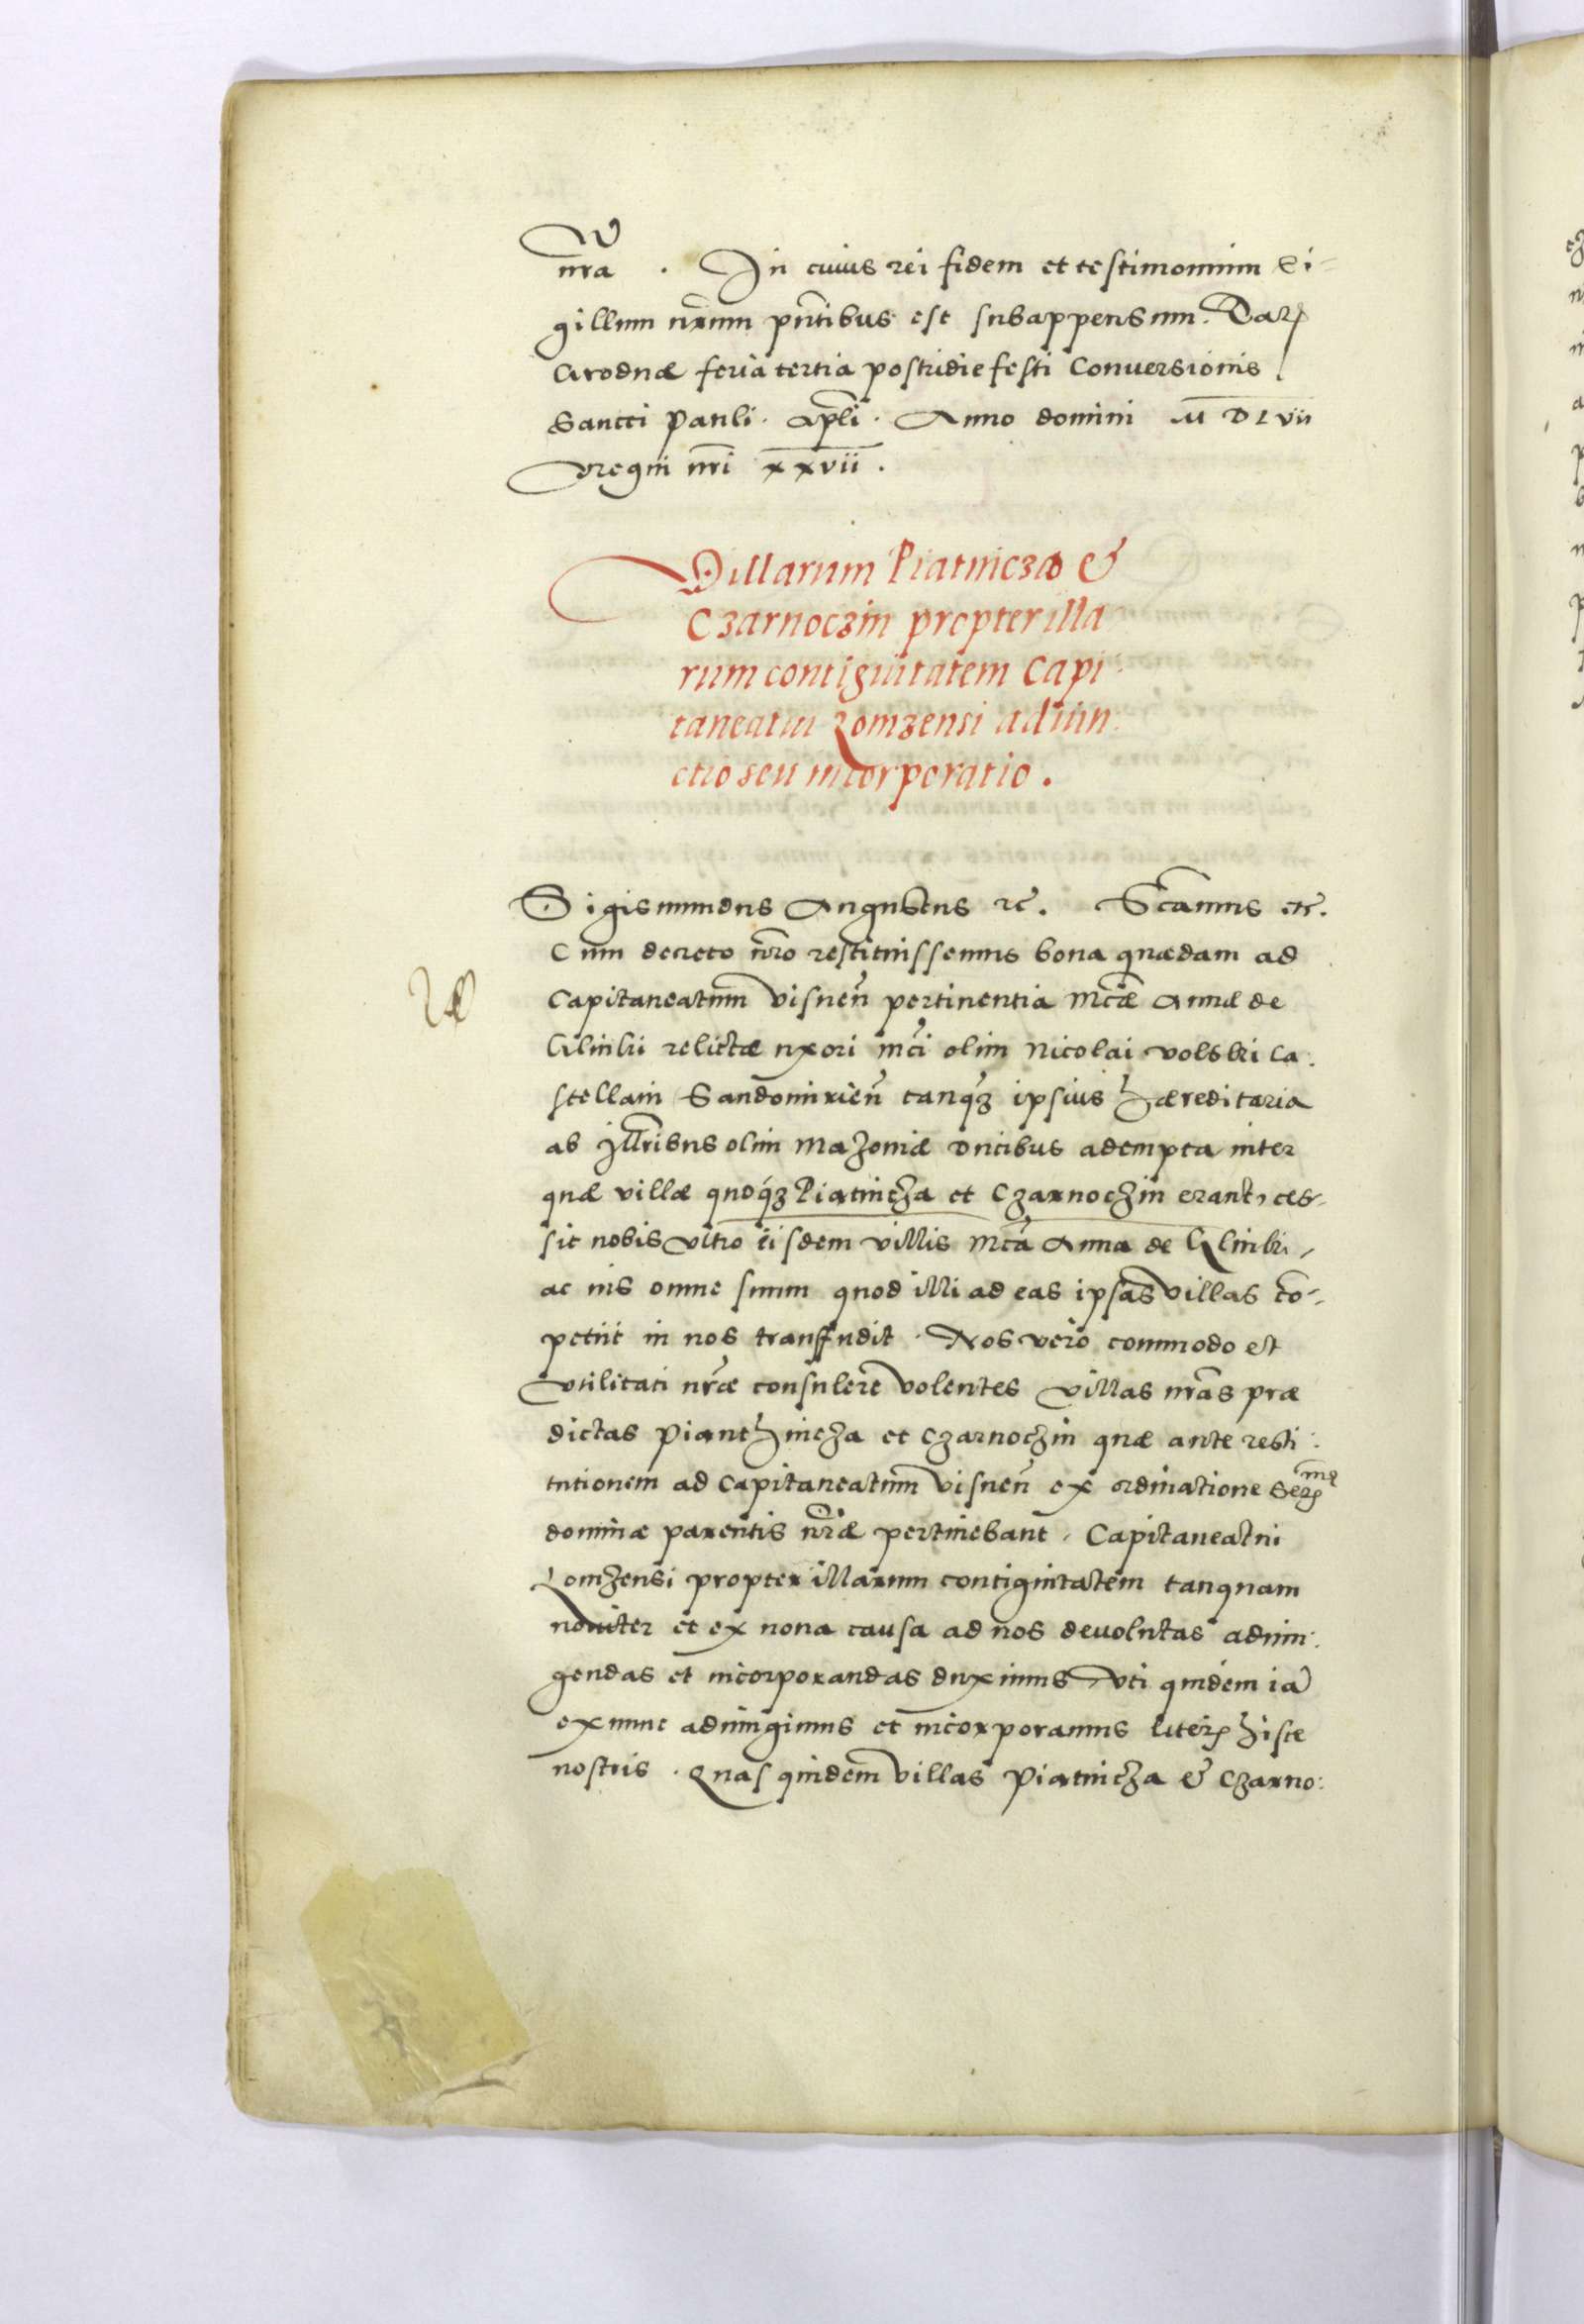 nr̃a. In cuius rei fidem et testimonium Si-
gillum nr̃um pñtibus est subappensum. Datȝ
Grodnæ feria tertia postridie festi Conuersionis
Sancti Pauli. Apl̃i. Anno domini M D L vii
vregni nr̃i xxvii.
Villarum Piatnicza &
Czarnoczin propter illa
rum contiguitatem Capi
taneatui Lomzensi adiun
ctio seu incorporatio.
Sigismundus Augustus ⁊c. Sc̃amus etc̃.
Cum decreto nr̃o restituissemus bona quædam ad
Capitaneatum Visneñ pertinentia Mc̃æ Annæ de
Glinki relictæ uxori mc̃i olim Nicolai Volski Ca
stellani Sandomirieñ tanqȝ ipsius hæreditaria
ab Illr̃ibus olim Mazoniæ Ducibus adempta inter
quæ villæ quoqȝ Piatnicza et Czarnoczin erant, ces-
sit nobis vltro iisdem villis Mc̃a Anna de Glinki,
ac ius omne suum quod illi ad eas ipsas villas cõ-
petiit in nos transfudit. Nos vero commodo et
vtilitati nr̃æ consulere volentes villas nr̃as præ
dictas Pianthnicza et Czarnoczin quæ ante resti
tutionem ad Capitaneatum Visneñ ex ordinatione Serȝ mę
dominæ parentis nr̃æ pertinebant, Capitaneatui
Lomzensi propter illarum contiguitatem tanquam
nouiter et ex noua causa ad nos deuolutas adiun
gendas et incorporandas duximus vti quidem iã
ex nunc adiungimus et incorporamus literȝ hisce
nostris. Quas quidem villas Piatnicza & Czarno